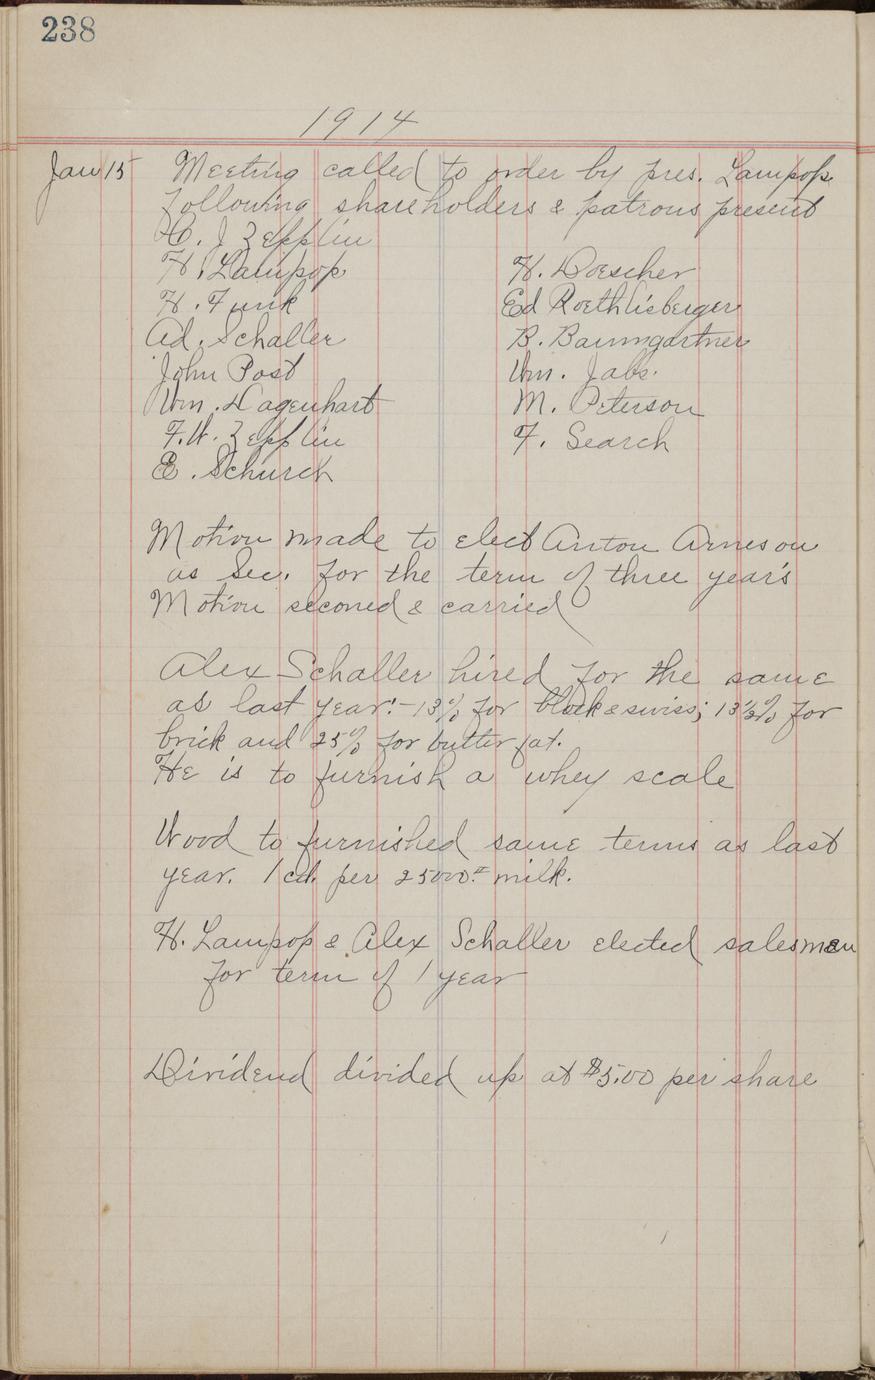 238
1914
Jan 15 Meeting called to order by pres. Lampop.
Following shareholders & patrons present
H. J. Zepplin
H. Lampop H. Doescher
H. Funk Ed Roethlisberger
Ad. Schaller B. Baumgartner
John Post Wm. Jabs.
Wm. Dagenhart M. Peterson
F.W. Zepplin F. Search
E. Schurch
Motion made to elect Anton Arneson
as Sec. for the term of three year's
Motion seconed & carried
Alex Schaller hired for the same
as last year:- 13% for block & swiss; 13½% for
brick and 25% for butter fat.
He is to furnish a whey scale
Wood to furnished same terms as last
year. 1 cd. per 25000# milk.
H. Lampop & Alex Schaller elected salesmen
for term of 1 year
Dividend divided up at $5.00 per share